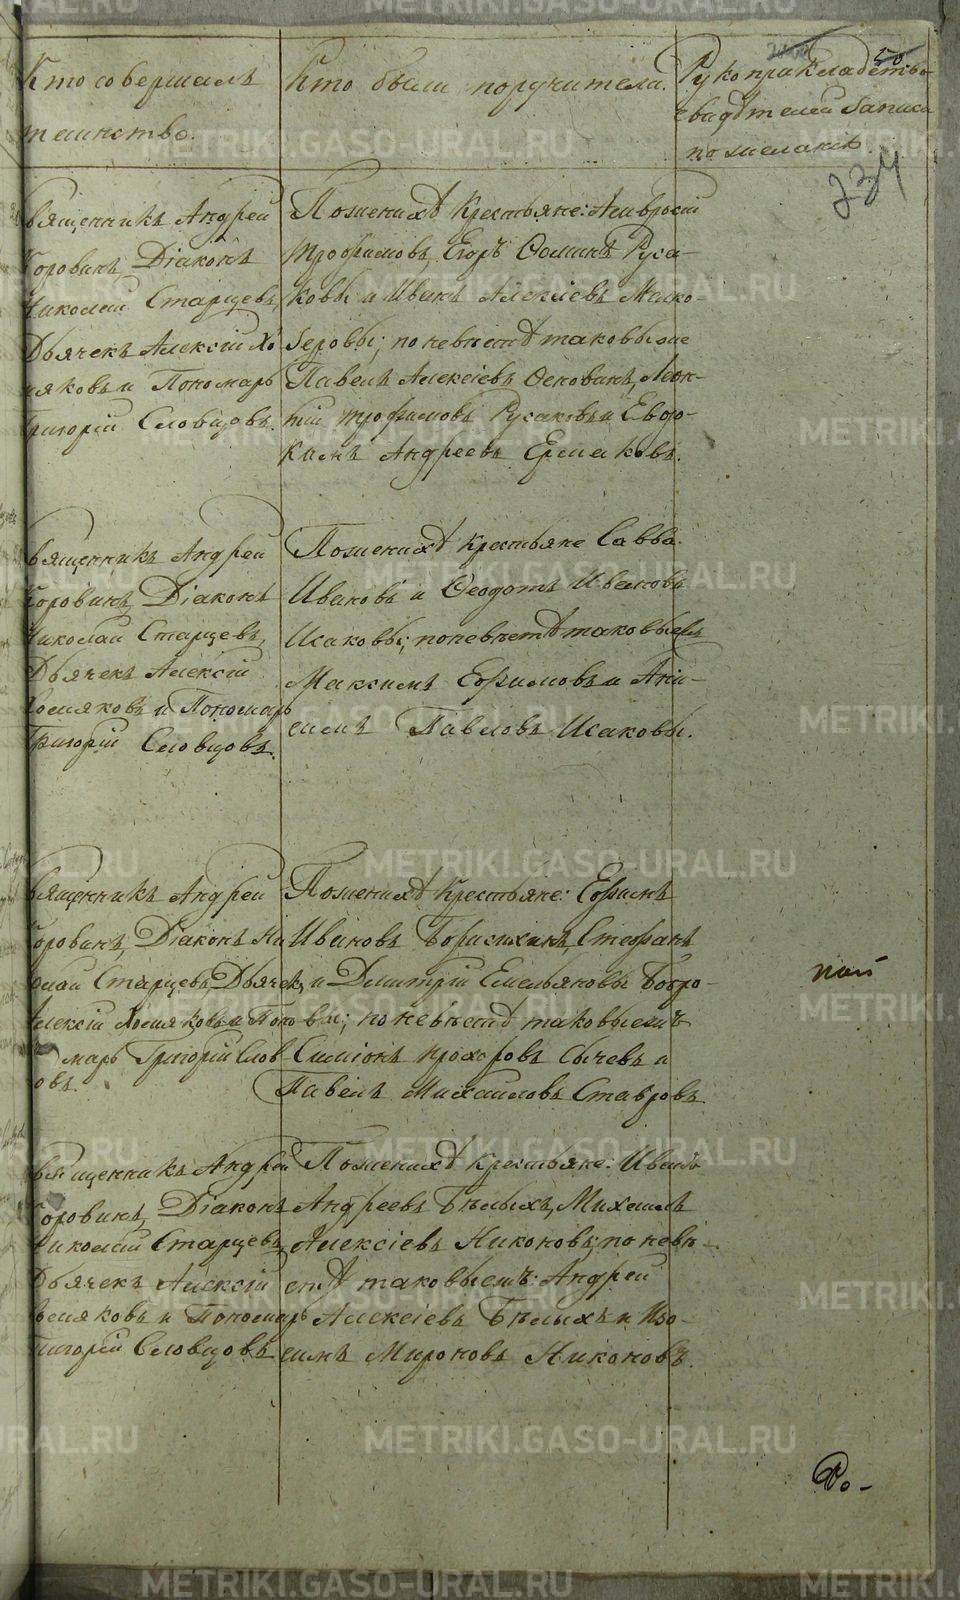 Кто совершалъ
таинство.
Кто были поручители.
Рукоприкладство
свидѣтелей записи
по желанію.
50
234
Священникъ Андрей
Коровинъ, Діаконъ
Николай Старцевъ,
Дьячекъ Алексій Хо
мяковъ и Пономарь
Григорій Словцовъ.
По женихѣ крестьяне: Амвросій
Трофимовъ, Егоръ Ѳоминъ Руса-
ковы и Иванъ Алексіевъ Мало-
зеровы; по невѣстѣ таковыеже
Павелъ Алексіевъ Осковинъ, Леон-
тій Трофимовъ Русаковъ и Евдо-
кимъ Андреевъ Ермаковъ.
Священникъ Андрей
Коровинъ, Діаконъ
Николай Старцевъ,
Дьячекъ Алексій
Хомяковъ и Пономарь
Григорій Словцовъ.
По женихѣ крестьяне Савва
Ивановъ и Ѳеодотъ Ивановъ
Исаковы; по невѣстѣ таковыежъ
Максимъ Ефимовъ и Ани-
симъ Павловъ Исаковы.
Священникъ Андрей
Коровинъ, Діаконъ Ни
колай Старцевъ, Дьячекъ
Алексій Хомяковъ и Поно
марь Григорій Слов
овъ.
По женихѣ крестьяне: Ефимъ
Ивановъ Борисихинъ, Стефанъ
и Димитрій Емельяновы Бобро-
вы; по невѣстѣ таковыежъ
Симіонъ Прохоровъ Сычевъ и
Павелъ Михайловъ Ставровъ
Священникъ Андрей
Коровинъ, Діаконъ
Николай Старцевъ,
Дьячекъ Алексій
Хомяковъ и Пономарь
Григорій Словцовъ
По женихѣ крестьяне: Иванъ
Андреевъ Бѣлыхъ, Михаилъ
Алексіевъ Никоновъ; по невѣ-
стѣ таковыежъ: Андрей
Алексіевъ Бѣлыхъ и Изо-
симъ Мироновъ Никоновъ.
METRIKI.GASO-URAL.RU